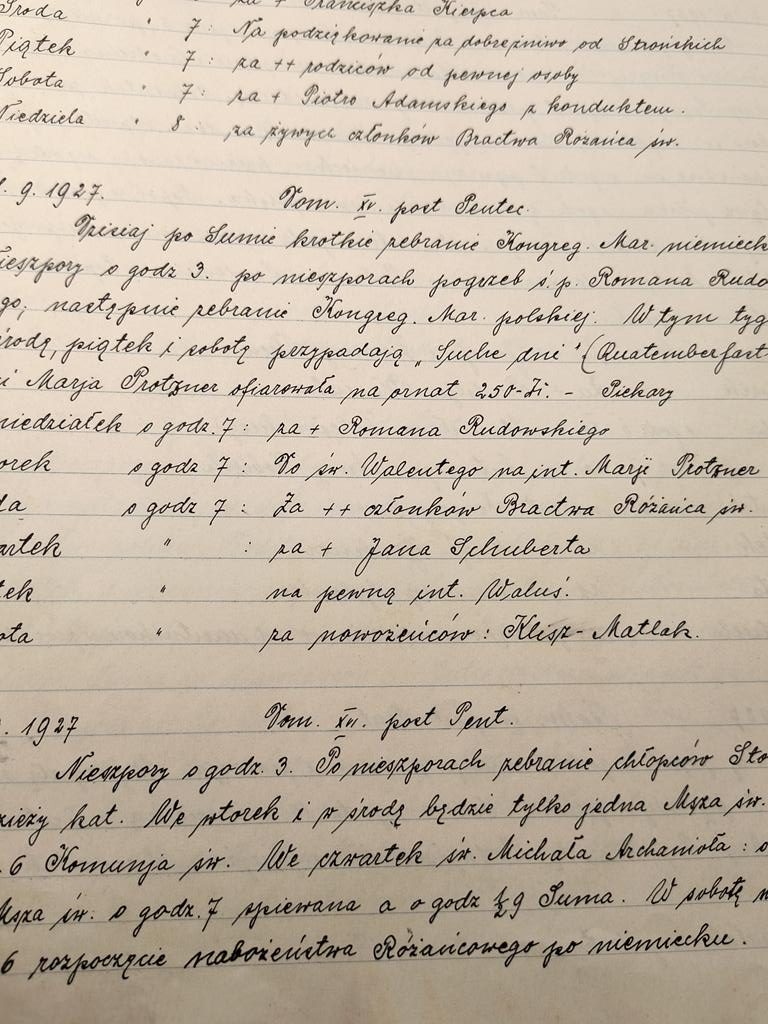 Środa " za + Franciszka Kierpca
Piątek " 7: Na podziękowanie za dobre żniwo od Strońskich
Sobota " 7: za ++ rodziców od pewnej osoby
Niedziela " 7: za + Piotra Adamskiego z konduktem.
" 8: za żywych członków Bractwa Różańca św.
9. 1927. Dom. XV. post Pentec.
Dzisiaj po Sumie krótkie zebranie Kongreg. Mar. niemieck
ieszpory o godz 3. po nieszporach pogrzeb ś. p. Romana Rudo
go; następnie zebranie Kongreg. Mar. polskiej. W tym tyg
środę, piątek i sobotę przypadają "Suche dni" (Quatemberfast
i Marja Protzner ofiarowała na ornat 250-Zł. - Piekary
niedziałek o godz. 7: za + Romana Rudowskiego
orek o godz 7: Do św. Walentego na int. Marji Protzner
da o godz 7: Za ++ członków Bractwa Różańca św.
artek " : za + Jana Schuberta
tek " na pewną int. Waluś.
ota " za nowożeńców: Klisz-Matlak.
. 1927 Dom. XVI. post Pent.
Nieszpory o godz. 3. Po nieszporach zebranie chłopców Sto
zieży kat. We wtorek i w środę będzie tylko jedna Msza św.
. 6 Komunja św. We czwartek św. Michała Archanioła: o
Msza św. o godz. 7 śpiewana a o godz ½9 Suma. W sobotę
6 rozpoczęcie nabożeństwa Różańcowego po niemiecku.